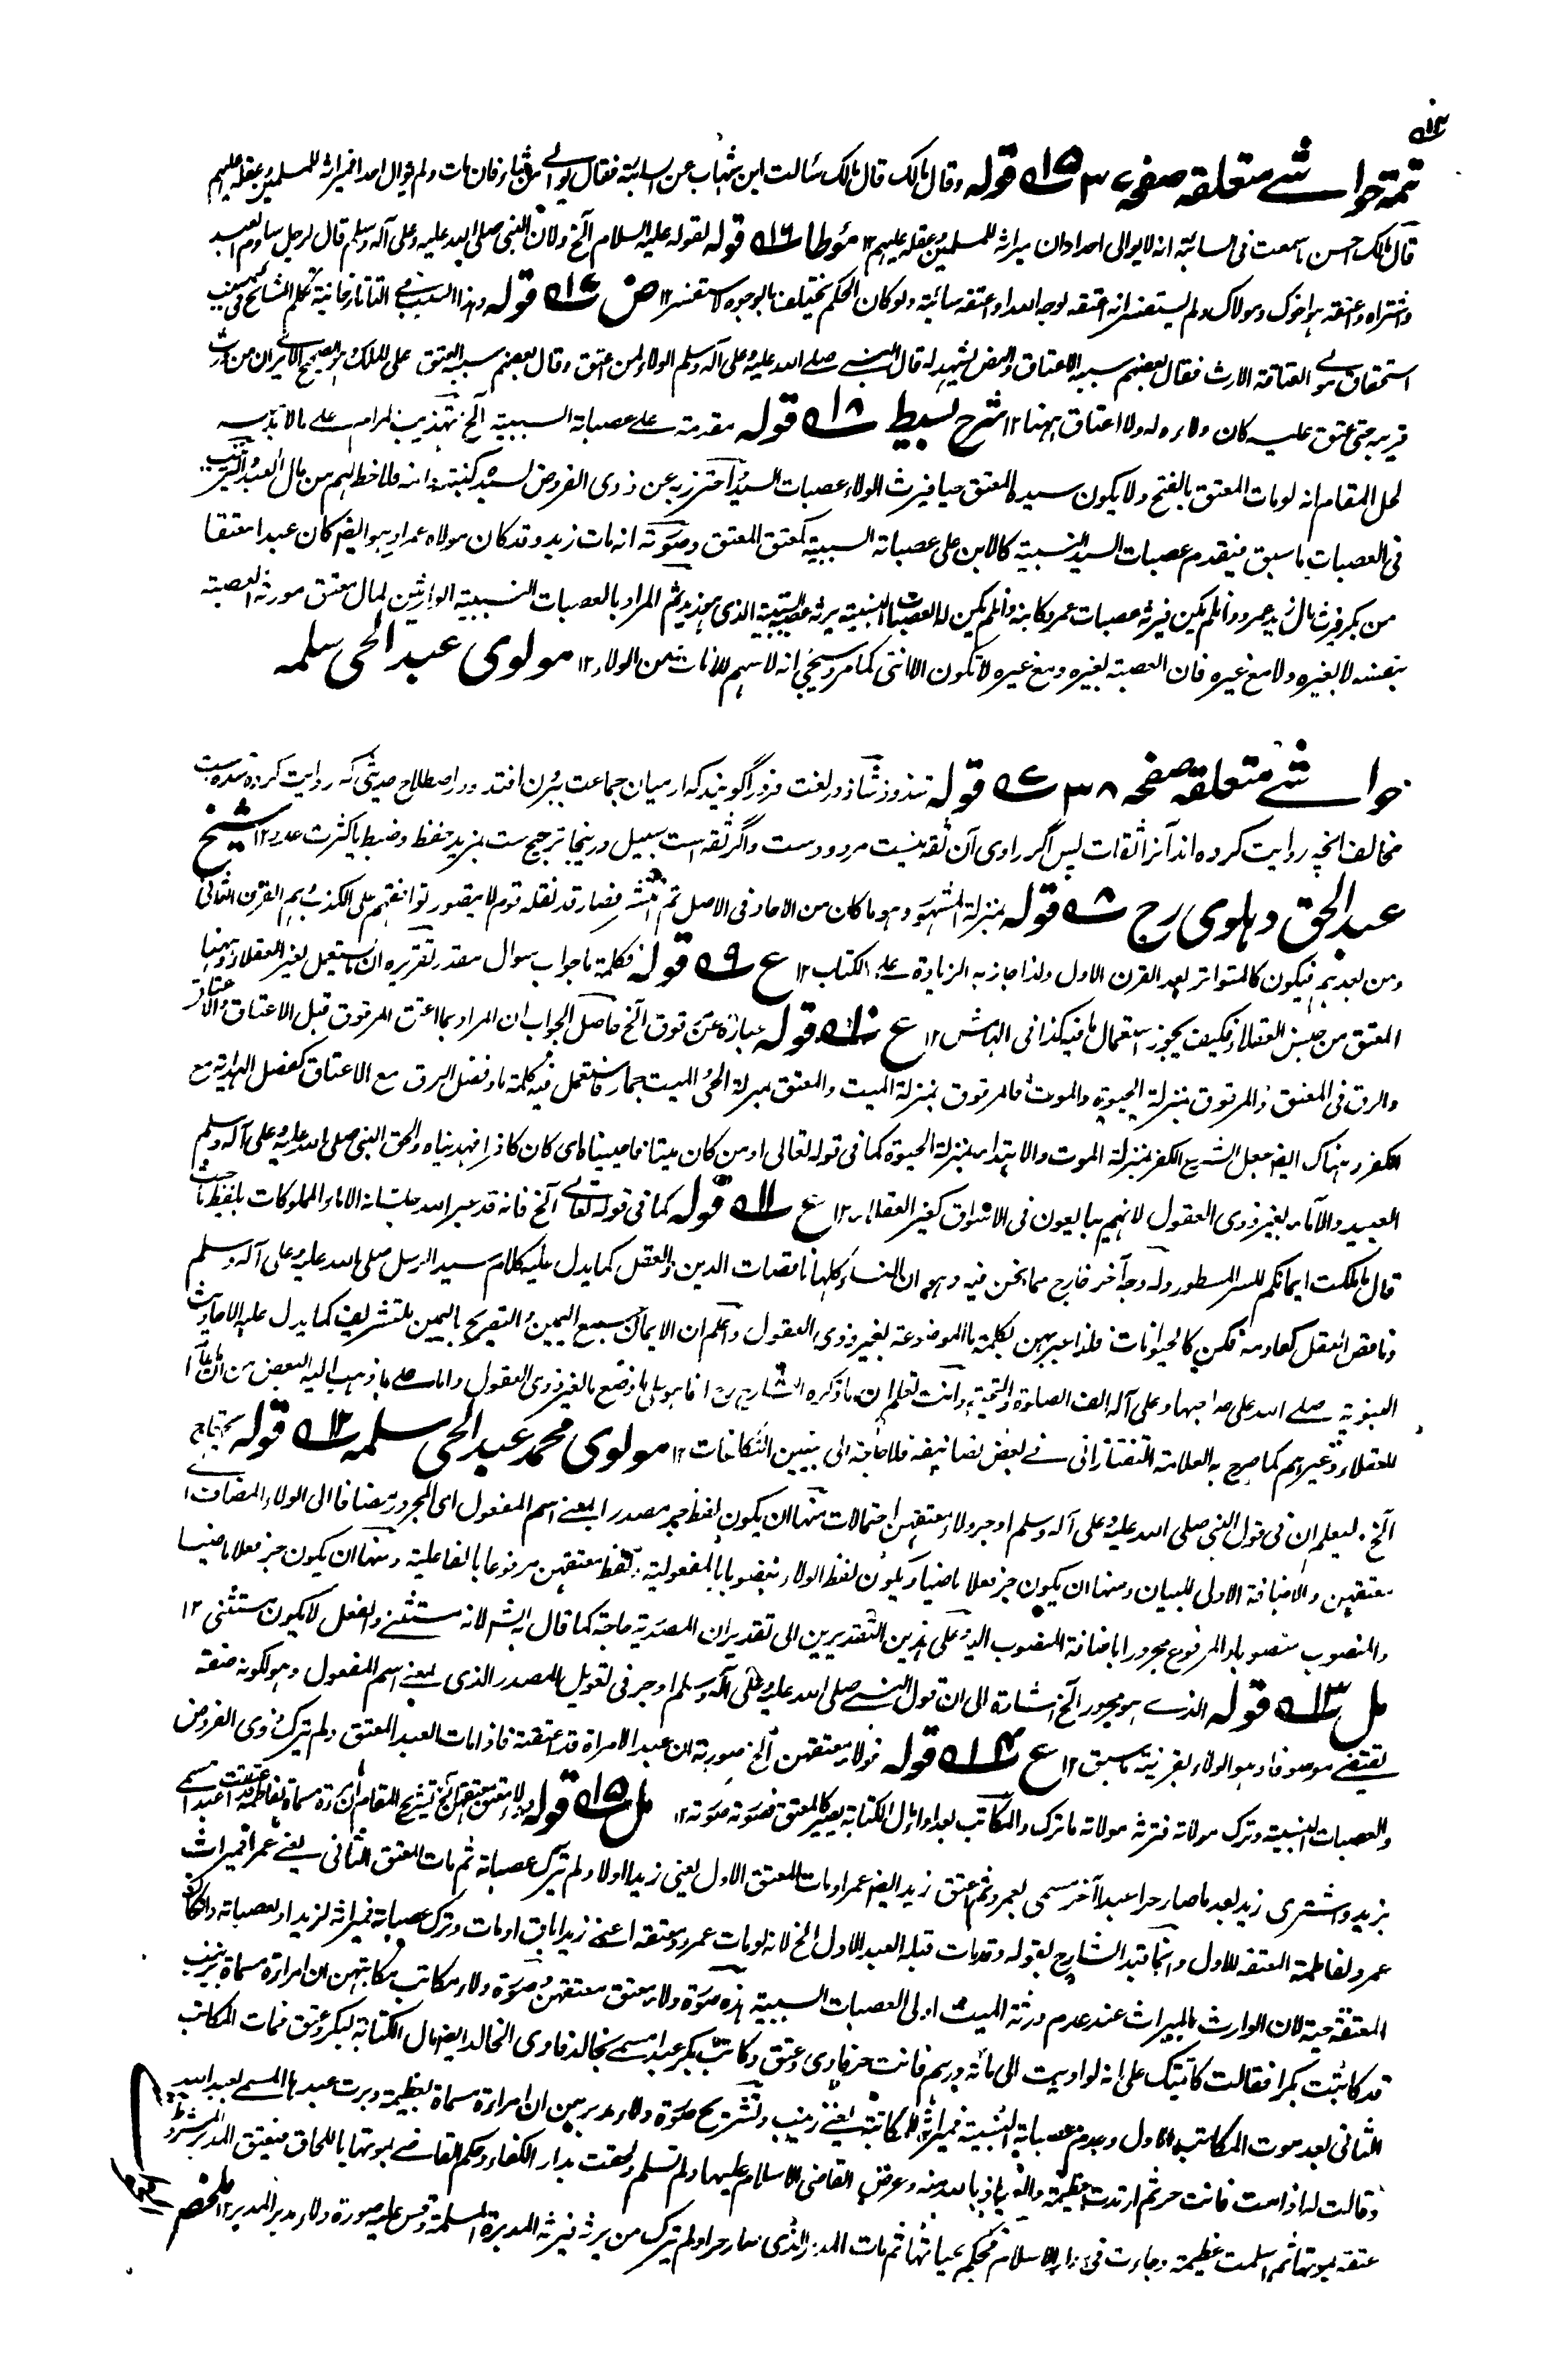 تتمة حواشے متعلقه صفحه ۳۷ ۱۵ قوله وقال مالک قال مالک سئالت ابن شهاب عن السائبة فقال يوالے من شاء فان مات ولم يوال احدا فميراثه للمسلمين وعقله عليهم
قال مالک احسن ما سمعت فى السائبة انه لا يوالى احدا وان ميراثه للمسلمين وعقله عليهم ۱۲ مؤطا ۱۶ قوله لقوله عليه السلام الخ ولان النبى صلى الله عليه وعلى آله وسلم قال لرجل ساوم العبد
واشتراه واعتقه هو اخوك ومولاك ولم يستفسر انه اعتقه لوجه الله او اعتقه سائبة ولو كان الحكم مختلفا بالوجوه لاستفسر ۱۲ ض ۱۷ قوله وهذا السبب فے التاتارخانية تكلم المشائخ فى سبب
استحقاق مولے العتاقة الارث فقال بعضهم سببه الاعتاق والنص يشهد له قال النبے صلے الله عليه وعلى آله وسلم الولاء لمن اعتق وقال بعضهم سببه العتق على الملك وهو الصحيح الا يرى ان من ورث
قريبه حتى عتق عليه كان ولاءه له ولا اعتاق ههنا ۱۲ شرح بسيط ۱۸ قوله مقدمة على عصباته السببية الخ تهذيب المرام على ما لا بد منه
لحل المقام انه لو مات المعتق بالفتح ولا يكون سيده المعتق حيا فيرث الولاء عصبات السيد احترز به عن ذوى الفروض لسيده كبنته وامه فلا حظ لهم من مال العبد والترتيب
فى العصبات ما سبق فيقدم عصبات السيد النسبية كالابن على عصباته السببية كمعتق المعتق وصورته انه مات زيد وقد كان مولاه عمرا وهو ايضا كان عبدا معتقا
من بكر فيرث مال زيد عمرو وان لم يكن فيرثه عصبات عمرو كابنه وان لم يكن له العصبات النسبية يرثه عصبة السببية الذى هو بكر ثم المراد بالعصبات النسبية الوارثين لمال معتق مورثه العصبة
بنفسه لا بغيره ولا مع غيره فان العصبة بغيره ومع غيره لا تكون الا انثى كما مر وسيجئ انه لا سهم للاناث من الولاء ۱۲ مولوى عبد الحى سلمه
حواشے متعلقه صفحه ۳۸ ۷ قوله شذوذ شاذ در لغت فرد را گويند كه از ميان جماعت بيرون افتد ودر اصطلاح حديثى كه روايت كرده شده ست
مخالف انچه روايت كرده اند آنرا ثقات پس اگر راوى آن ثقه نيست مردود ست واگر ثقه است سبيل درينجا ترجيح ست بمزيد حفظ وضبط يا كثرت عدد ۱۲ شيخ
عبد الحق دهلوى رح ۸ قوله بمنزلة المشهور وهو ما كان من الاحاد فى الاصل ثم انتشر فصار قد نقله قوم لا يتصور توافقهم على الكذب وهم القرن الثانى
ومن بعدهم فيكون كالمتواتر بعد القرن الاول ولذا جاز به الزيادة على الكتاب ۱۲ ع ۹ قوله فكلمة ما جواب سوال مقدر تقريره ان ما يستعمل لغير العقلاء وههنا
المعتق من جنس العقلاء فكيف يجوز استعمال ما فيه كذا فى الهامش ۱۲ ع ۱۰ قوله عبارة عن مرقوق الخ حاصل الجواب ان المراد بما اعتق المرقوق قبل الاعتاق والاعتاق
والرق فى المعتق والمرقوق بمنزلة الحيوة والموت فالمرقوق بمنزلة الميت والمعتق بمنزلة الحى والميت جماد فاستعمل فيه كلمة ما وفضل الرق مع الاعتاق كفضل الهداية مع
الكفر وهناك ايضا جعل الشرع الكفر بمنزلة الموت والاهتداء بمنزلة الحيوة كما فى قوله تعالى او من كان ميتا فاحييناه اى كان كافرا فهديناه والحق النبى صلى الله عليه وعلى آله وسلم
العبيد والاماء بغير ذوى العقول لانهم يبايعون فى الاسواق كغير العقلاء ۱۲ ع ۱۱ قوله كما فى قوله تعالے الخ فانه قد عبر الله جل شانه الاماء المملوكات بلفظ ما حيث
قال ما ملكت ايمانكم للسر المسطور وله وجه آخر خارج مما نحن فيه وهو ان النساء كلها ناقصات الدين والعقل كما يدل عليه كلام سيد الرسل صلى الله عليه وعلى آله وسلم
وناقص العقل كعادمه فكن كالحيوانات فلذا عبر بهن بكلمة ما الموضوعة لغير ذوى العقول واعلم ان الايمان جميع اليمين والتصريح باليمين للتشريف كما يدل عليه الاحاديث
النبوية صلے الله على صاحبها وعلى آله الف الصلوة والتحية وانت تعلم ان ما ذكره الشارح رح انما هو على ما وضع ما لغير ذوى العقول واما على ما ذهب اليه البعض من ان ما عام
للعقلاء وغيرهم كما صرح به العلامة التفتازانى فے بعض تصانيفه فلا حاجة الى تبيين التكلفات ۱۲ مولوى محمد عبد الحى سلمه ۱۲ قوله يحتاج
الخ ليعلم ان فى قول النبى صلى الله عليه وعلى آله وسلم او جر ولاء معتقهن احتمالات منها ان يكون لفظ جر مصدرا بمعنے اسم المفعول اى المجرور مضافا الى الولاء المضاف الى
معتقهن والاضافة الاولى للبيان ومنها ان يكون جر فعلا ماضيا ويكون لفظ الولاء منصوبا بالمفعولية ولفظ معتقهن مرفوعا بالفاعلية ومنها ان يكون جر فعلا ماضيا
والمنصوب منصوبا والمرفوع مجرورا باضافة المنصوب اليه وعلى هذين التقديرين الى تقدير ان المصدرية حاجة كما قال به الش لانه مستثنے والفعل لا يكون مستثنى ۱۲
مل ۱۳ قوله الذے هو مجرور الخ اشارة الى ان قول النبے صلى الله عليه وعلى آله وسلم او جر فى تاويل المصدر الذى بمعنے اسم المفعول وهو لكونه صفة
تقتضے موصوفا وهو الولاء بقرينة ما سبق ۱۲ ع ۱۴ قوله فولاء معتقهن الخ صورته ان عبدا لامراة قد اعتقته فاذا مات العبد المعتق ولم يترك ذوى الفروض
والعصبات النسبية وترك مولاته فترثه مولاته ما ترك والمكاتب بعد اداء مال الكتابة يصير كالمعتق فصورته صورته ۱۲ مل ۱۵ قوله ولاء معتق معتقهن الخ تشريح المقام ان امراة مسماة بفاطمة قد اعتقت عبدا مسمى
بزيد واشترى زيد بعد ما صار حرا عبدا آخر مسمى بعمرو ثم اعتق زيد ايضا عمرا ومات المعتق الاول يعنى زيدا اولا ولم يترك عصباته ثم مات المعتق الثانى يعنے عمرا فميراث
عمرو لفاطمة المعتقة للاول وانما قيد الشارح بقوله وقد مات قبله العبد الاول الخ لانه لو مات عمرو ومعتقه اعنے زيدا باق او مات وترك عصباته فميراثه لزيد او لعصباته وان كانت
المعتقة حية لان الوارث بالميراث عند عدم ورثة الميت اولى العصبات السببية هذه صورة ولاء معتق معتقهن وصورة ولاء مكاتب مكاتبهن ان امراة مسماة بزينب
قد كاتبت بكرا فقالت كاتبتك على انه لو اديت الى مائة درهم فانت حر فادى وعتق وكاتب بكر عبدا مسمے بخالد فادى الخالد ايضا مال الكتابة لبكر وعتق فمات المكاتب
الثانى بعد موت المكاتب الاول وعدم عصباته النسبية فميراثه للمكاتبة يعنے زينب وتشريح صورة ولاء مدبرهن ان امراة مسماة بعظيمة دبرت عبدها المسمى بعبد الله
وقالت له اذا مت فانت حر ثم ارتدت عظيمة والعياذ بالله منه وعرض القاضى الاسلام عليها ولم تسلم ولحقت بدار الكفار وحكم القاضے بموتها باللحاق فيعتق المدبر المشروط
عتقه بموتها ثم اسلمت عظيمة وجاءت فى دار الاسلام فحكم بحياتها ثم مات المدبر الذى صار حرا ولم يترك من يرثه فيرثه المدبرة المسلمة وقس عليه صورة ولاء مدبر المدبر ۱۲ ملخص